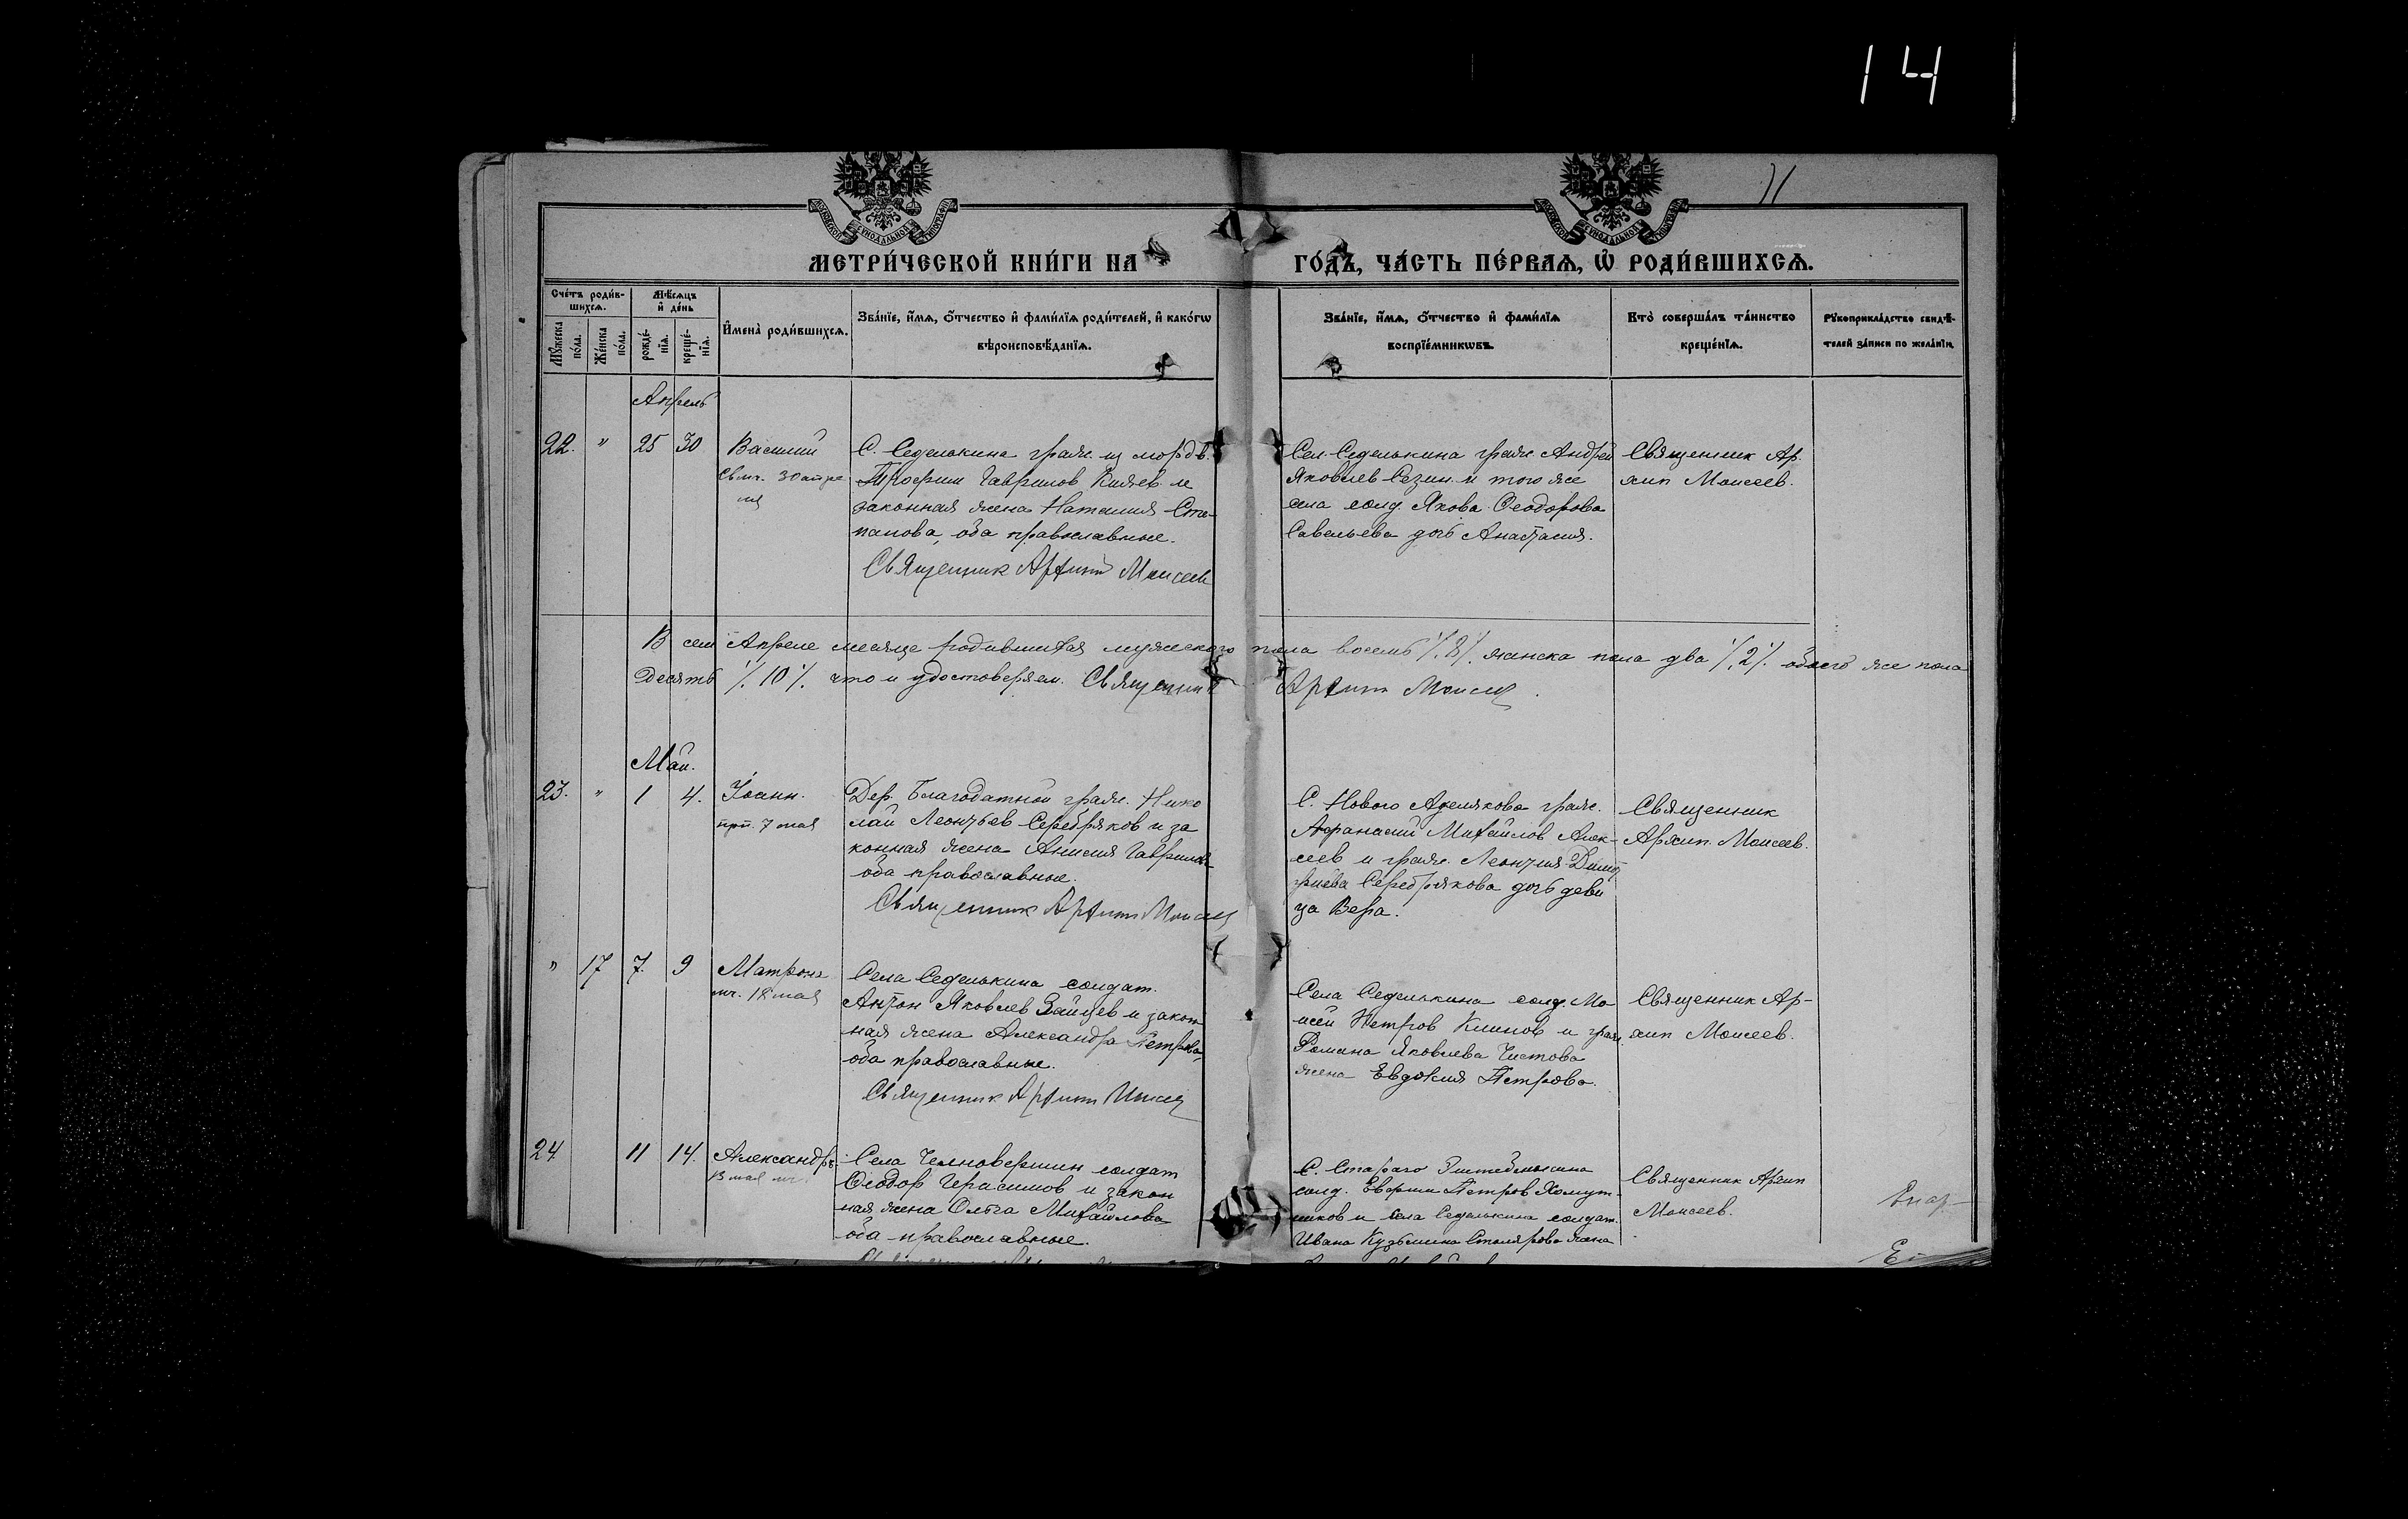 14
11
МЕТРИ́ЧЕСКОЙ КНИ́ГИ НА ГО́ДЪ, ЧА́СТЬ ПЕ́РВАѦ, Ѡ҆ РОДИ́ВШИХСѦ.
Сче́тъ роди́в-
шихсѧ.
Мꙋ́жеска по́ла.
Же́нска по́ла.
Мѣ́сѧцъ
и҆ де́нь
рожде́-
нїѧ.
креще́-
нїѧ.
И҆мена̀ роди́вшихсѧ.
Зва́нїе, и҆́мѧ, ѻ҆́тчество и҆ фами́лїѧ роди́телей, и҆ како́гѡ
вѣроисповѣ́данїѧ.
Зва́нїе, и҆́мѧ, ѻ҆́тчество и҆ фами́лїѧ
воспрїе́мникѡвъ.
Кто̀ соверша́лъ та́инство
креще́нїѧ.
Рꙋкоприкла́дство свидѣ́-
телей за́писи по жела́нїю.
Апрель
22. " 25 30
Василий
Свмч. 30 апре
ля
С. Седелькина граж. из мордв.
Трофим Гаврилов Князев и
законная жена Наталия Сте-
панова, оба православные.
Священник Архип Моисеев
Сел. Седелькина граж. Андрей
Яковлев Сезин и того же
села солд. Якова Феодорова
Савельева дочь Анастасия.
Священник Ар-
хип Моисеев.
В сем Апреле месяце родившихся мужеского пола восемь /8/ женска пола два /2/ обоего же пола
Десять /10/ что и удостоверяем. Священник Архип Моисеев.
Май.
23. " 1 4.
Иоанн.
прп. 7 мая
Дер. Благодатной граж. Нико
лай Леонтьев Серебряков и за
конная жена Анисия Гаврилова
оба православные.
Священник Архип Моисеев
С. Нового Аделякова граж.
Афанасий Михайлов Алек-
сеев и граж. Леонтия Димит
риева Серебрякова дочь деви
ца Вера.
Священник
Архип Моисеев.
" 17 7. 9
Матрона
мч. 18 мая
Села Седелькина солдат.
Антон Яковлев Зайцев и закон
ная жена Александра Петрова,
оба православные.
Священник Архип Моисеев
Села Седелькина солд. Мо
исей Петров Климов и граж.
Романа Яковлева Чистова
жена Евдокия Петрова.
Священник Ар-
хип Моисеев.
24 11 14.
Александр
13 мая мч.
Села Челновершин солдат
Феодор Герасимов и закон
ная жена Ольга Михайлова
оба православные.
С. Стараго
солд. Ефрем Петров Хомут-
ников и села Седелькина солдат.
Ивана Кузьмина Столярова жена
Священник Архип
Моисеев.